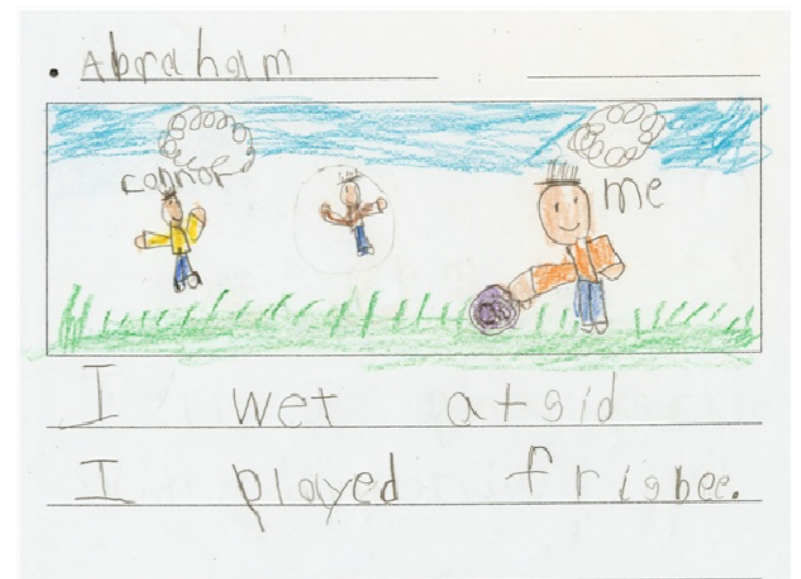 Abraham
connor
me
I wet atsid
I played frisbee.